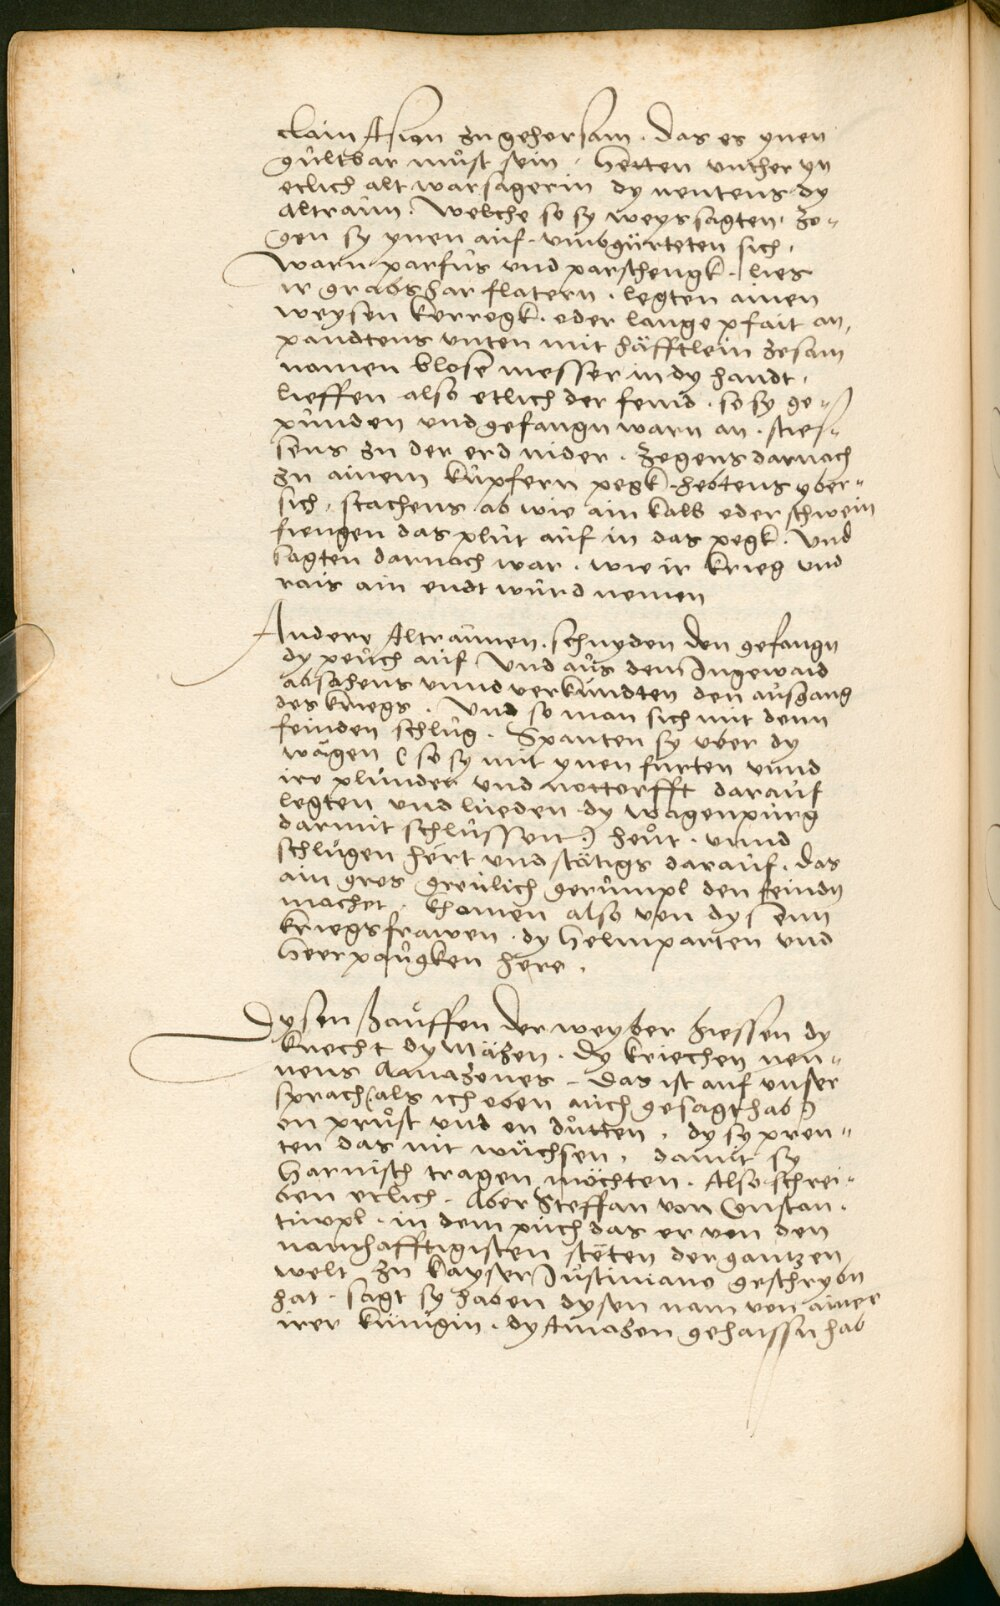 clain Asien zu gehorsam. Das es ynen
gůltbar můst sein. Hetten unther yn
etlich alt warsagerin dy nentens dy
Altraùn. Welche so sy weyssagten. Zo-
gen sy ynen aùf. umbgürteten sich.
Warn parfùs und parschengk. lies
ir grabs har flatern. legten ainen
weysen kerregk. oder lange pfait an,
pandtens unten mit häfftlein zesam
namen blose messer in dy handt.
lieffen also etlich der feind. so sy ge-
pùnden und gefangn warn an. sties-
sens zu der erd nider. Zogens darnach
zu ainem kùpfern pegk. hebtens yber-
sich. stachens ab wie ain kalb oder schwein
fiengen das plùt aùf in das pegk. Und
sagten darnach war. wie ir krieg und
rais ain endt wùrd nemen
Andere Altraùnen. schnyden den gefangn
dy peùch aùf Und aùs dem Ingewaid
absahens unnd verkùndten den aùsgang
des kriegs. Und so man sich mit denn
feinden schlùg. Spanten sy uber dy
wägen (so sy mit ynen furten unnd
ire plùnder und notterfft daraùf
legten und lueden dy wagenpùrg
darmit schlùssen) heůt. unnd
schlùgen hért und stätigs daraùf. das
ain gros greùlich gerùmpl den feindn
machet. Khomen also von dysenn
kriegsfrawen. dy Helmparten und
Heerpaùgken here.
Dysen haùffen der weyber hiessen dy
knecht dy Mäzen. Dy kriechen nen-
nens Amazones. Das ist auf unser
sprach (als ich oben aùch gesagt hab)
on prùst und on důtten. dy sy pren-
ten das nit wüchsen, damit sy
Harnisch tragen möchten. Also schrei-
ben etlich. Aber Steffan von Constan-
tinopl. in dem pùch das er von den
namhafftigisten stëten der gantzen
welt zu kayser Jùstiniano geschrybn
hat. sagt sy haben dysen nam von ainer
irer künigin. dy Amazon gehaissn hab